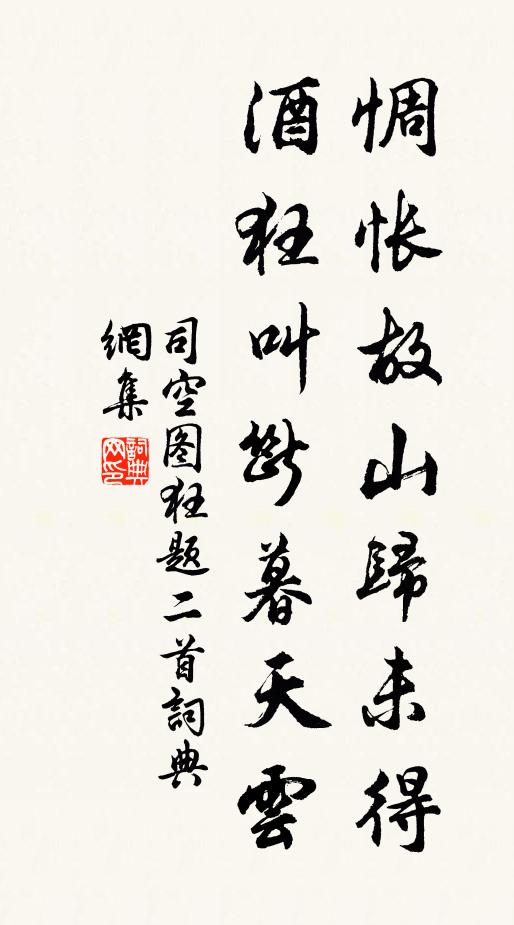 惆怅故山歸未得
酒狂叫斷暮天雲
司空图狂题二首詞典
網集
詞典
网印